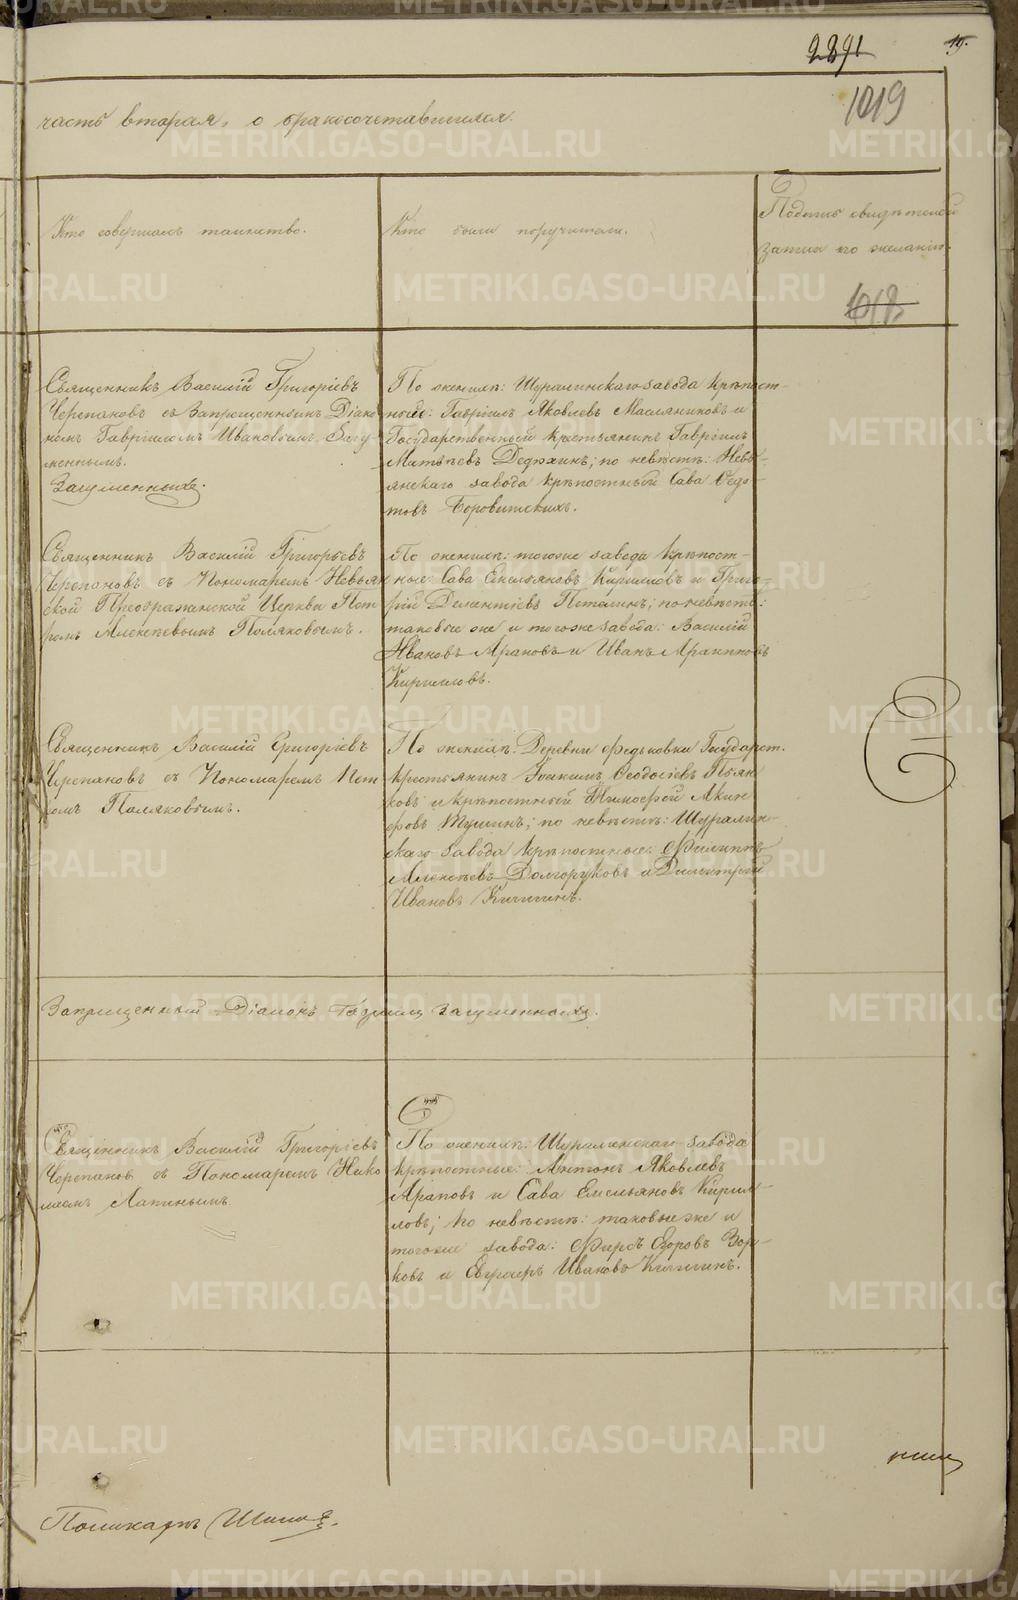 2891
19.
1019
часть вторая, о бракосочетавшихся.
Кто совершалъ таинство.
Кто были поручители.
Подпись свидѣтелей
записи по желанію.
1018
Священникъ Василій Григоріевъ
Черепановъ съ Запрещеннымъ Діако
номъ Гавріиломъ Ивановымъ Загу
меннымъ.
Загуменныхъ.
По женихѣ: Шуралинскаго завода крѣпост-
ные: Гавріилъ Яковлевъ Масляниковъ и
Государственный крестьянинъ Гавріилъ
Матѳѣевъ Дедюхинъ; по невѣстѣ: Невь-
янскаго завода крѣпостный Сава Ѳедо-
товъ Боровитскихъ.
Священникъ Василій Григорьевъ
Черепановъ съ Пономаремъ Невьян
ской Преображенской Церкви Пет
ромъ Алексѣевымъ Поляковымъ.
По женихѣ: тогоже завода крѣпост-
ные: Сава Емельяновъ Кириловъ и Григо-
рій Дементіевъ Поталинъ; по невѣстѣ:
таковые же и тогоже завода: Василій
Ивановъ Араповъ и Иванъ
Кириловъ.
Священникъ Василій Григоріевъ
Черепановъ съ Пономаремъ Пет
ромъ Поляковымъ.
По женихѣ: Деревни Федьковки Государст.
крестьянинъ Іоакимъ Ѳеодосіевъ Пьян
ковъ и крѣпостный Никифоръ Акин
фовъ Тушинъ; по невѣстѣ: Шуралин-
скаго завода крѣпостные: Филиппъ
Алексѣевъ Долгоруковъ и Димитрій
Ивановъ Кичигинъ.
Запрещенный Діаконъ Гавріилъ Загуменныхъ.
Священникъ Василій Григоріевъ
Черепановъ съ Пономаремъ Нико
лаемъ Лапинымъ.
По женихѣ: Шуралинскаго завода
крѣпостные: Антонъ Яковлевъ
Араповъ и Сава Емельяновъ Кирил
ловъ; по невѣстѣ: таковые же и
тогоже завода: Фирсъ Егоровъ Зор-
ковъ и Ивановъ Кичигинъ.
Поликарпъ
METRIKI.GASO-URAL.RU